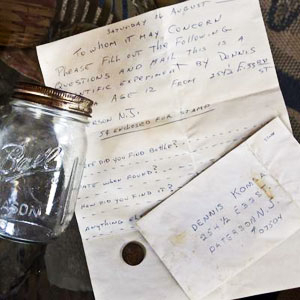 SATURDAY 16 AUGUST
TO WHOM IT MAY CONCERN
PLEASE FILL OUT THE FOLLOWING
QUESTIONS AND MAIL. THIS IS A
EXPERIMENT BY DENNIS
AGE 12 FROM 254½ E.
ST
N.J.
5¢ ENCLOSED FOR STAMP
DID YOU FIND BOTTLE?
WHEN FOUND?
HOW DID YOU FIND IT?
ANYTHING
Ball
MASON
DENNIS
254½
PATERSON N.J.
07504